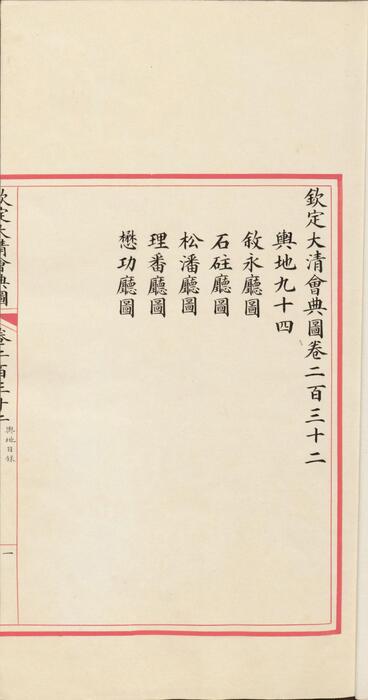 欽定大清會典圖卷二百三十二
輿地九十四
敘永廳圖
石砫廳圖
松潘廳圖
理番廳圖
懋功廳圖
欽定大清會典圖
卷二百三十二
輿地目錄
一